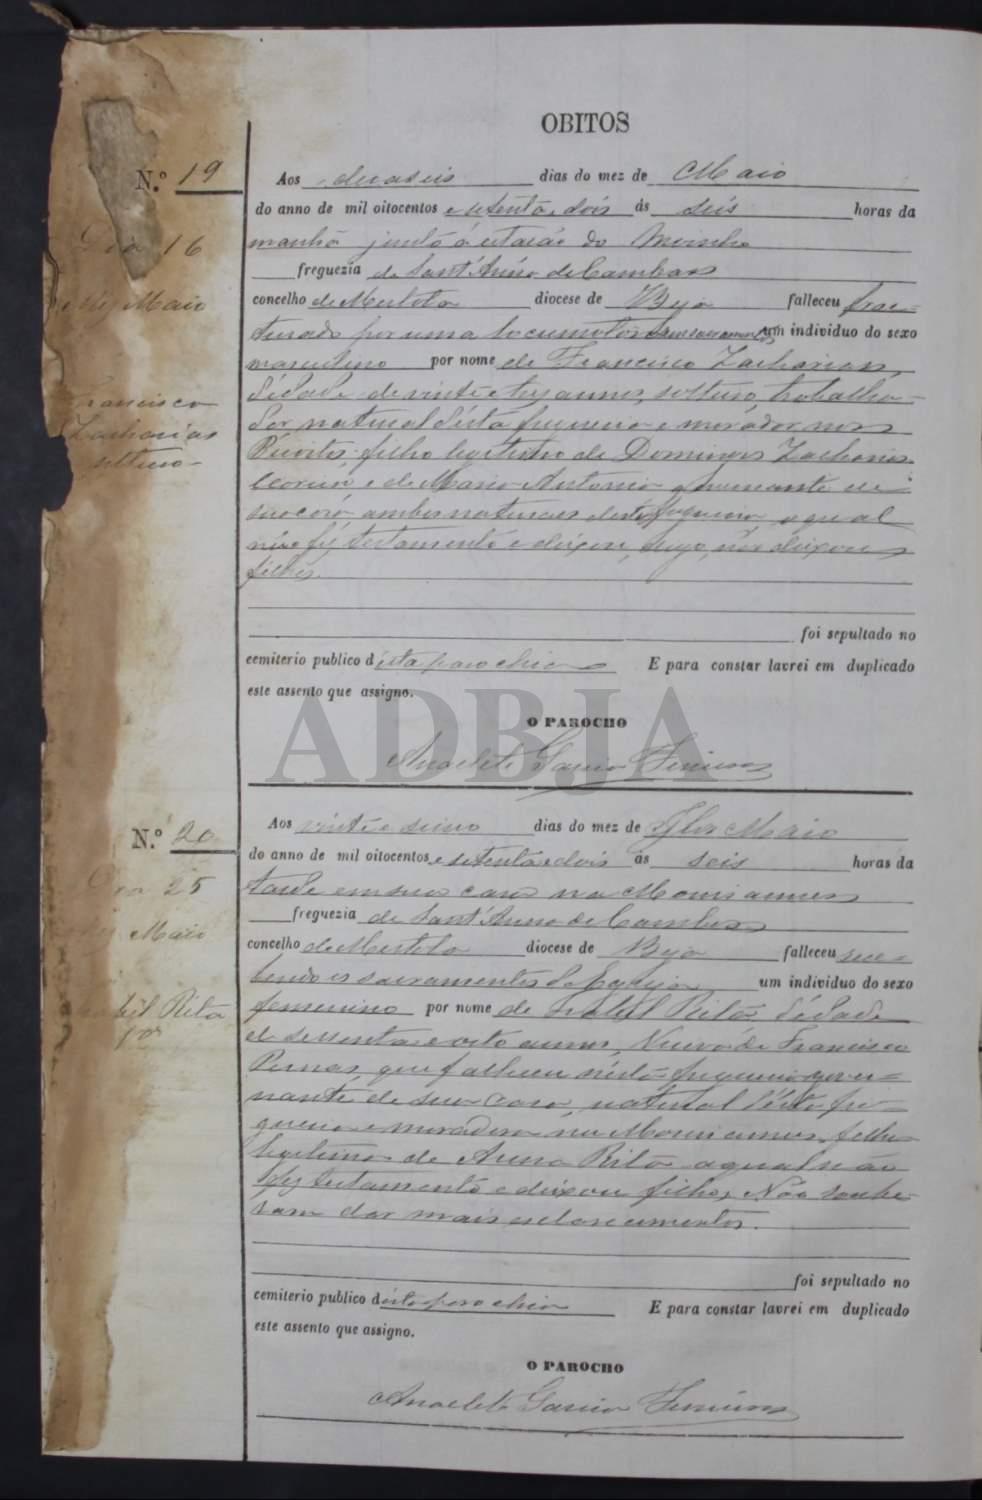 OBITOS
N.º 19
Dia 16
Maio
Francisco
Zacharias
solteiro
Aos desaseis dias do mez de Maio
do anno de mil oitocentos e setenta e dois ás seis horas da
manhã junto á estação do Moinho
freguezia de Sant'Anna de Cambas
concelho de Mertola diocese de Beja falleceu frac-
turado por uma locumotora sem sacramentos um individuo do sexo
masculino por nome de Francisco Zacharias
d'idade de vinte e tres annos, solteiro, trabalha-
dor natural d'esta freguezia e morador nos
filho legitimo de Domingos Zacharias
e de Maria Antonia governante de
sua casa ambos naturaes desta freguezia, o qual
não fez testamento e deixou, digo, não deixou
filhos.
foi sepultado no
cemiterio publico d'esta parochia E para constar lavrei em duplicado
este assento que assigno.
O PAROCHO
Anacleto Garcia
ADBJA
N.º 20
Dia 25
Maio
Isabel Rita
Aos vinte e sinco dias do mez de Maio
do anno de mil oitocentos e setenta e dois ás seis horas da
tarde em sua casa
freguezia de Sant'Anna de Cambas
concelho de Mertola diocese de Beja falleceu rece-
bendo os sacramentos da Egreja um individuo do sexo
femenino por nome de Isabel Rita d'idade
de sessenta e oito annos, Viuva de Francisco
que falleceu n'esta freguezia gover-
nante de sua casa, natural d'esta fre-
guezia e moradora filha
legitima de Anna Rita a qual não
fez testamento e deixou filhos, Não soube-
ram dar mais esclarecimentos.
foi sepultado no
cemiterio publico d'esta parochia E para constar lavrei em duplicado
este assento que assigno.
O PAROCHO
Anacleto Garcia